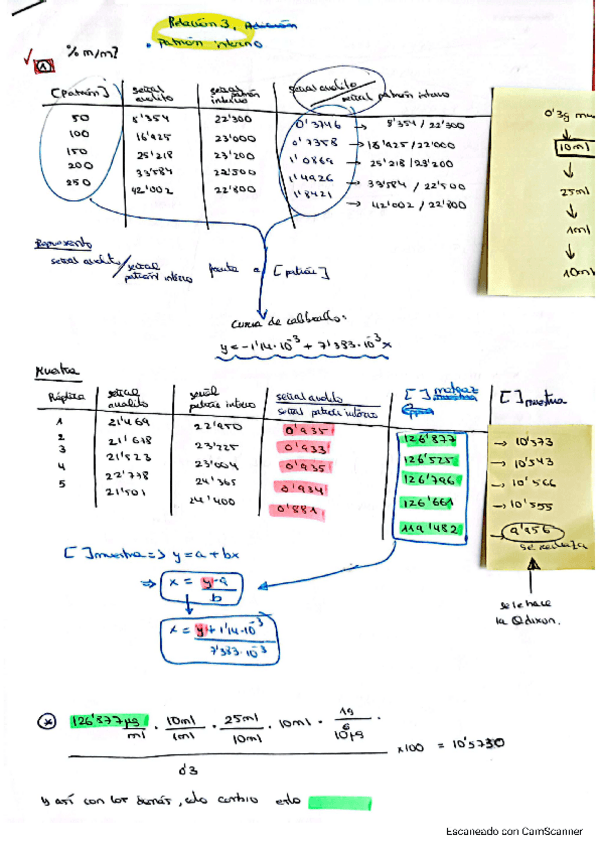 Relación 3. Adición
• Patrón interno
① % m/m?
[Patrón] señal analito señal patrón interno señal analito / señal patrón interno
50 8'354 22'300 0'3746 → 8'354 / 22'300
100 16'925 23'000 0'7358 → 16'925 / 22'000
150 25'218 23'200 1'0869 → 25'218 / 23'200
200 33'584 22'500 1'4926 → 33'584 / 22'500
250 42'002 22'800 1'8421 → 42'002 / 22'800
0'3g mu
10ml
25ml
1ml
10ml
Represento
señal analito / señal patrón interno frente a [patrón]
Curva de calibrado:
y = -1'14·10⁻³ + 7'383·10⁻³x
Muestra
Réplica señal analito señal patrón interno señal analito / señal patrón interno [ ] matraz [ ] muestra
1 21'469 22'950 0'935 126'877 → 10'573
2 21'618 23'225 0'933 126'525 → 10'543
3 21'523 23'004 0'935 126'796 → 10'566
4 22'778 24'365 0'934 126'661 → 10'555
5 21'501 24'400 0'881 119'482 → 9'956
se rechaza
[ ] muestra => y = a + bx
=> x = y - a / b
x = y + 1'14·10⁻³ / 7'383·10⁻³
se le hace
la Qdixon.
* 126'877µg / ml · 10ml / 1ml · 25ml / 10ml · 10ml · 1g / 10⁶µg ·
0'3
x100 = 10'5730
y así con los demás, solo cambio esto
Escaneado con CamScanner